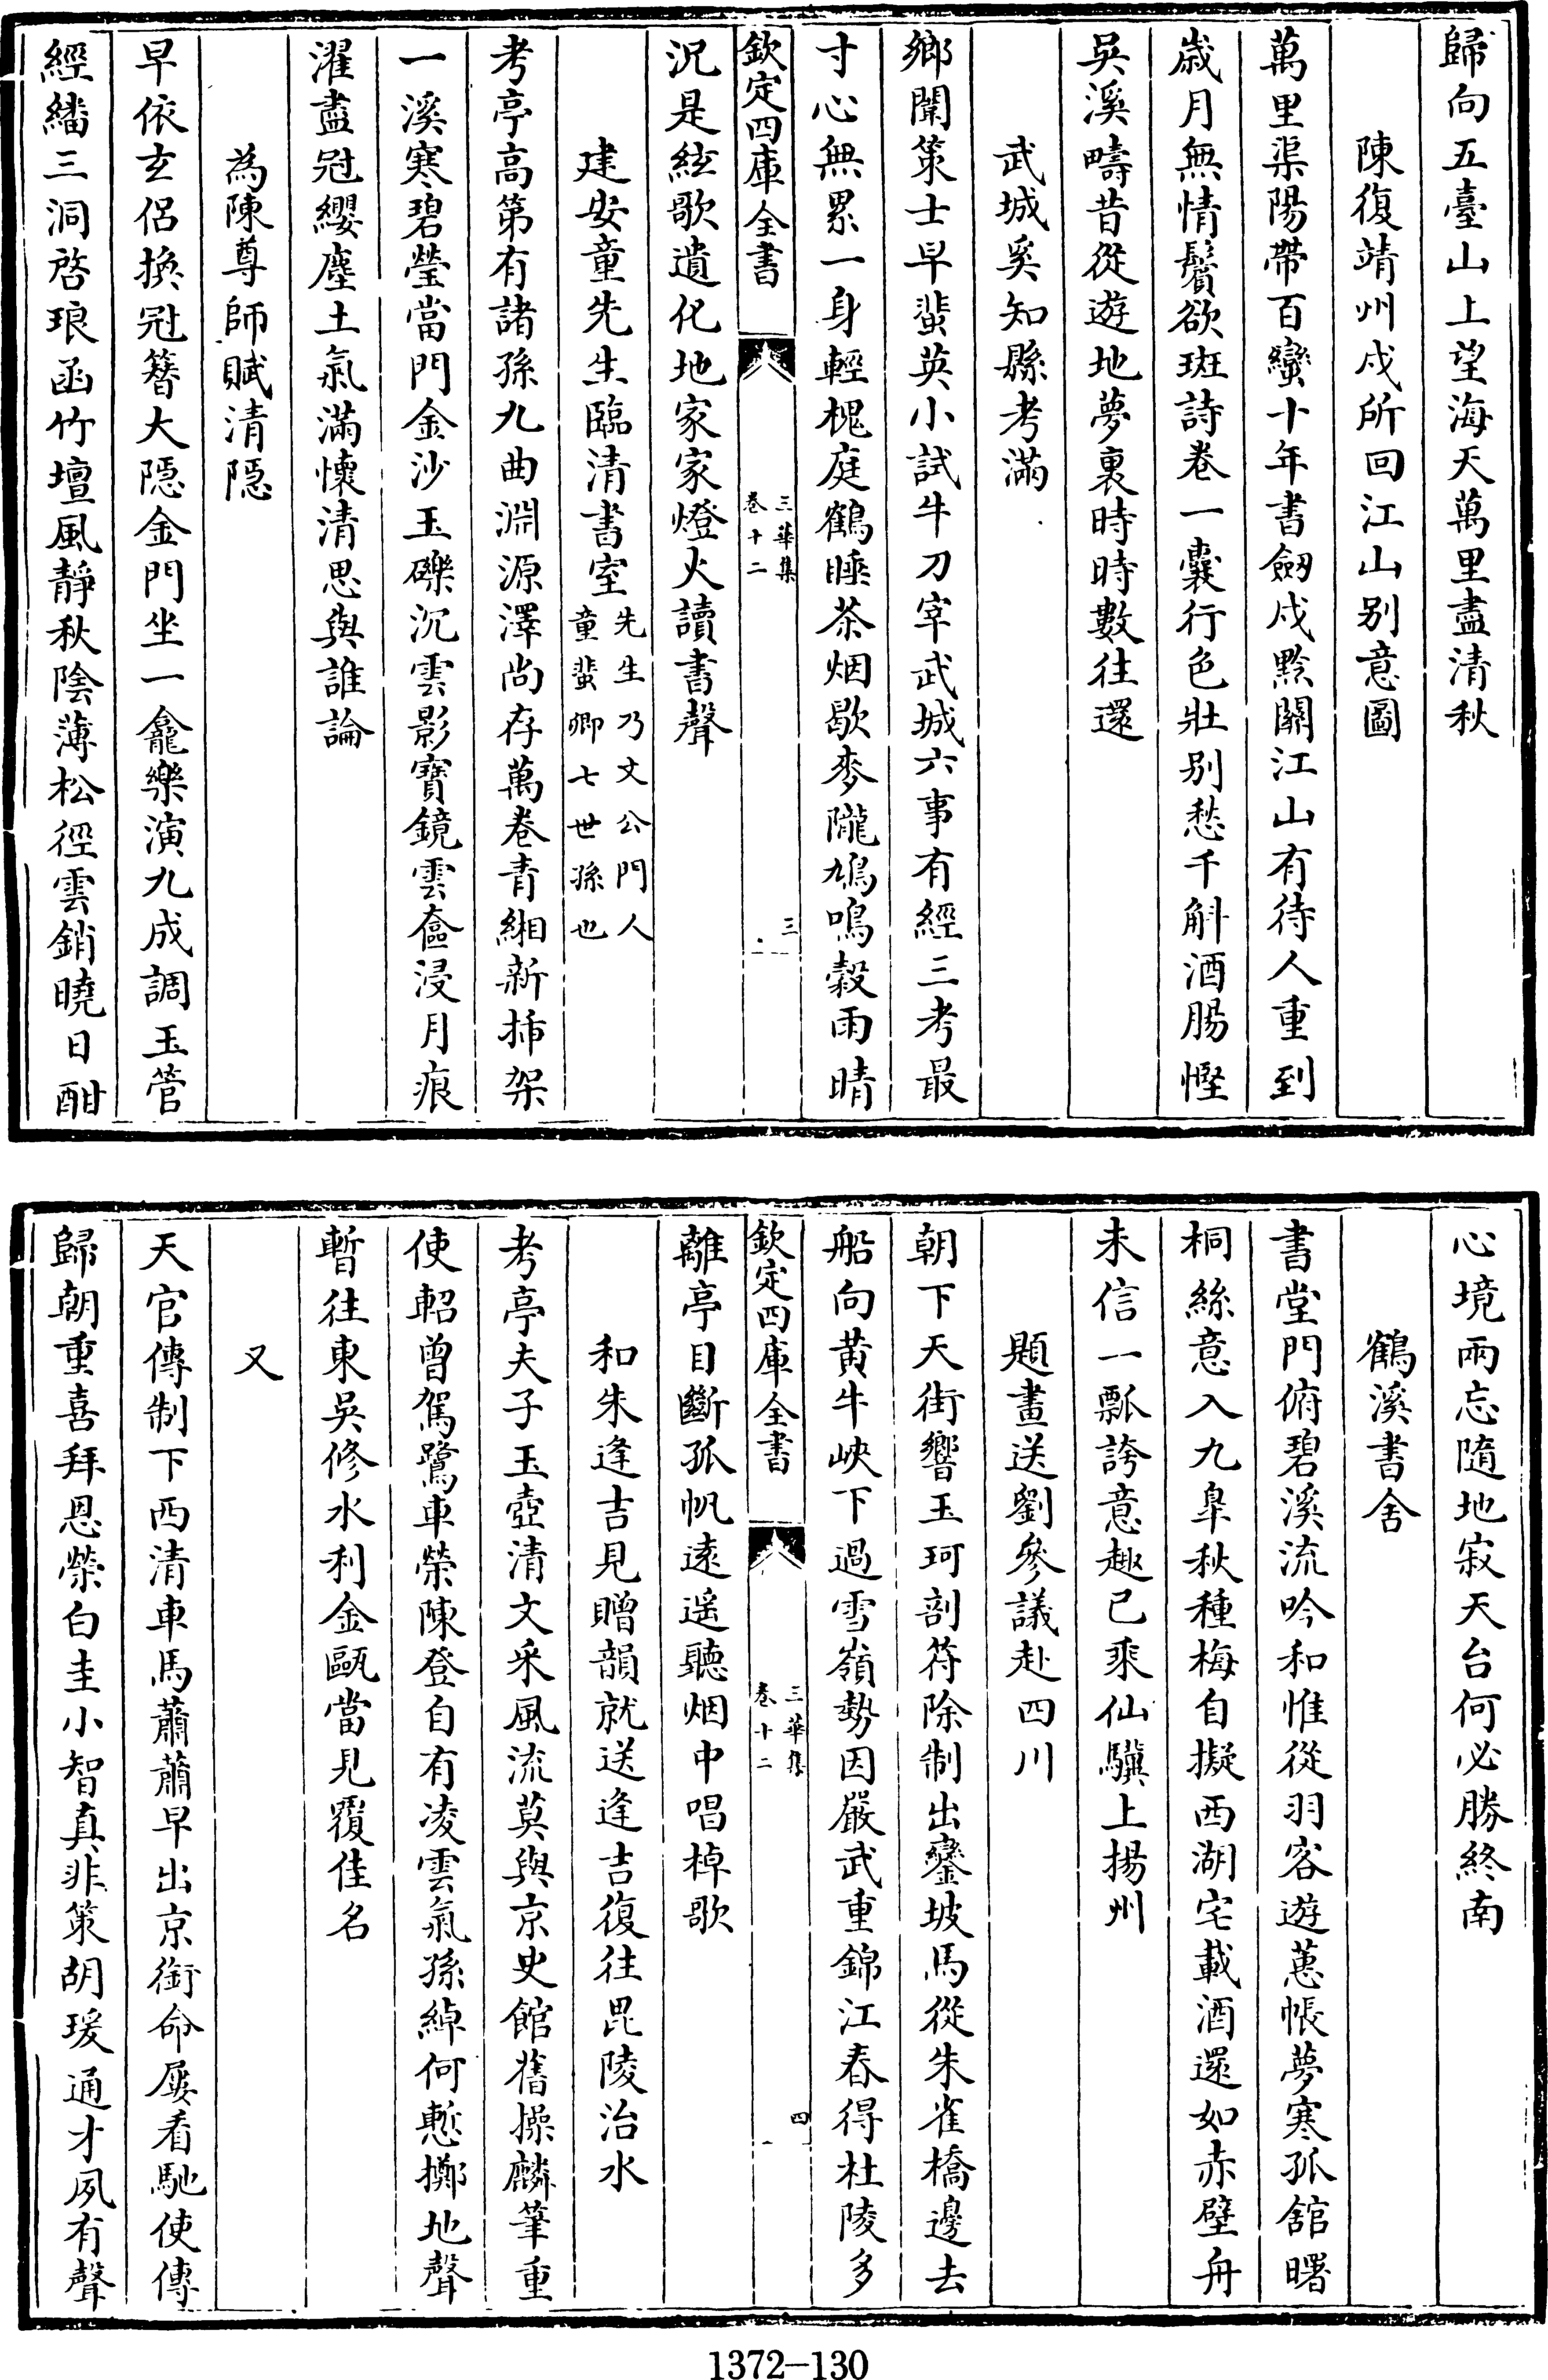 歸向五臺山上望海天萬里盡清秋
陳復靖州戍所回江山别意圖
萬里渠陽帶百蠻十年書劒戍黔關江山有待人重到
嵗月無情鬢欲斑詩卷一囊行色壯别愁千斛酒腸慳
吳溪疇昔從遊地夢裏時時數往還
武城奚知縣考滿
鄉闈策士早蜚英小試牛刀宰武城六事有經三考最
寸心無累一身輕槐庭鶴睡茶烟歇麥隴鳩鳴榖雨晴
欽定四庫全書
三華集
卷十二
三
況是絃歌遺化地家家燈火讀書聲
建安童先生臨清書室
先生乃文公門人
童蜚卿七世孫也
考亭高第有諸孫九曲淵源澤尚存萬卷青緗新揷架
一溪寒碧瑩當門金沙玉礫沉雲影寳鏡雲奩浸月痕
濯盡冠纓塵土氣滿懷清思與誰論
為陳尊師賦清隠
早依玄侣換冠簪大隠金門坐一龕樂演九成調玉管
經繙三洞啓琅函竹壇風靜秋陰薄松徑雲銷曉日酣
心境兩忘隨地寂天台何必勝終南
鶴溪書舍
書堂門俯碧溪流吟和惟從羽客遊蕙帳夢寒孤舘曙
桐絲意入九臯秋種梅自擬西湖宅載酒還如赤壁舟
未信一瓢誇意趣已乘仙驥上揚州
題畫送劉參議赴四川
朝下天街響玉珂剖符除制出鑾坡馬從朱雀橋邊去
船向黄牛峽下過雪嶺勢因嚴武重錦江春得杜陵多
欽定四庫全書
三華集
卷十二
四
離亭目斷孤帆遠遥聽烟中唱棹歌
和朱逢吉見贈韻就送逢吉復往毘陵治水
考亭夫子玉壺清文采風流莫與京史館舊操麟筆重
使軺曾駕鷺車榮陳登自有凌雲氣孫綽何慙擲地聲
暫往東吳修水利金甌當見覆佳名
又
天官傳制下西清車馬蕭蕭早出京銜命屢看馳使傳
歸朝重喜拜恩榮白圭小智真非策胡瑗通才夙有聲
1372-130